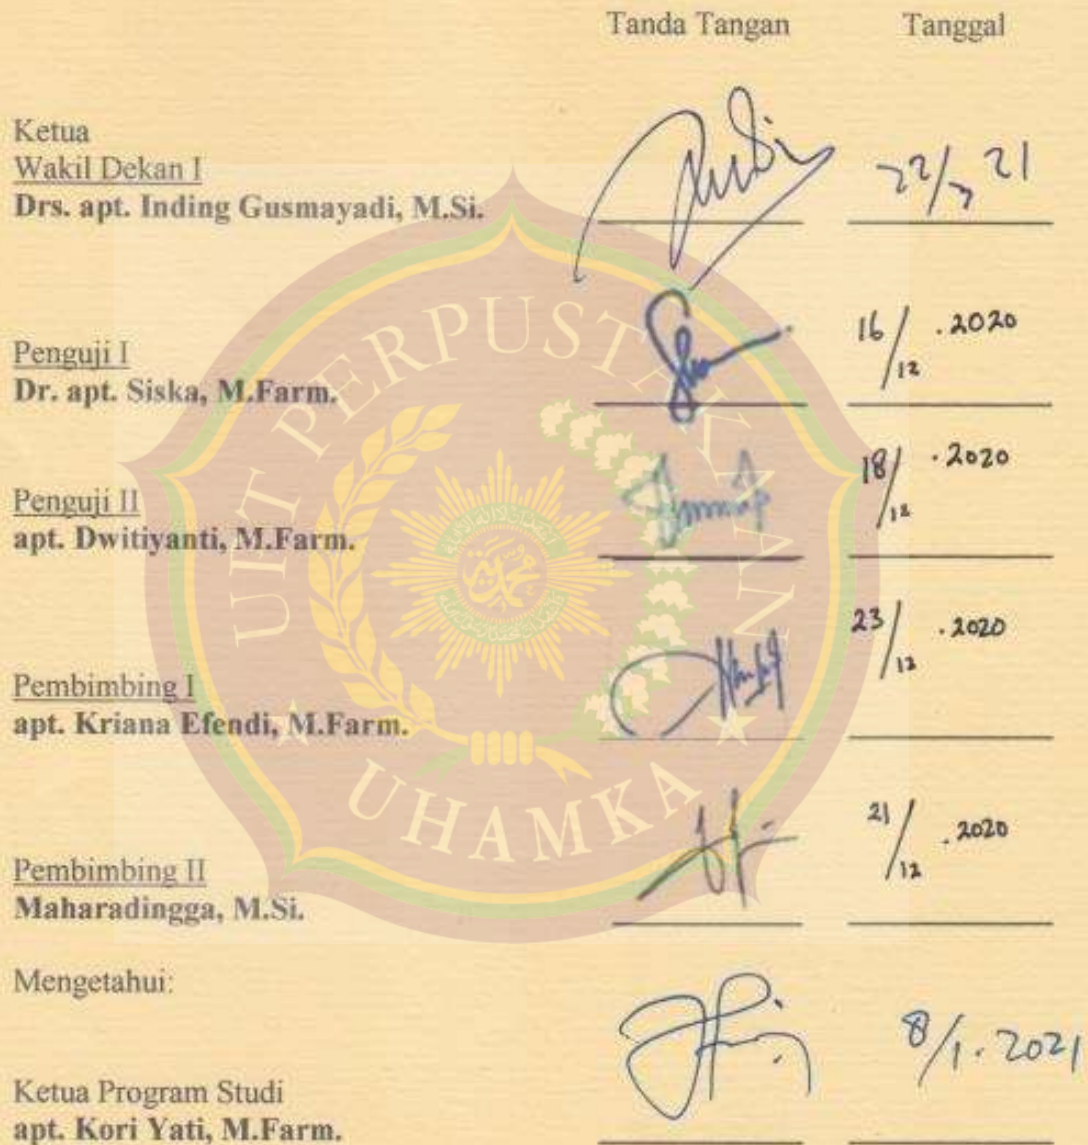 Tanda Tangan Tanggal
Ketua
Wakil Dekan I
Drs. apt. Inding Gusmayadi, M.Si.
22/3 21
Penguji I
Dr. apt. Siska, M.Farm.
16/12.2020
Penguji II
apt. Dwitiyanti, M.Farm.
18/12.2020
Pembimbing I
apt. Kriana Efendi, M.Farm.
23/12.2020
Pembimbing II
Maharadingga, M.Si.
21/12.2020
Mengetahui:
Ketua Program Studi
apt. Kori Yati, M.Farm.
8/1.2021
UIT PERPUSTAKAAN
UHAMKA